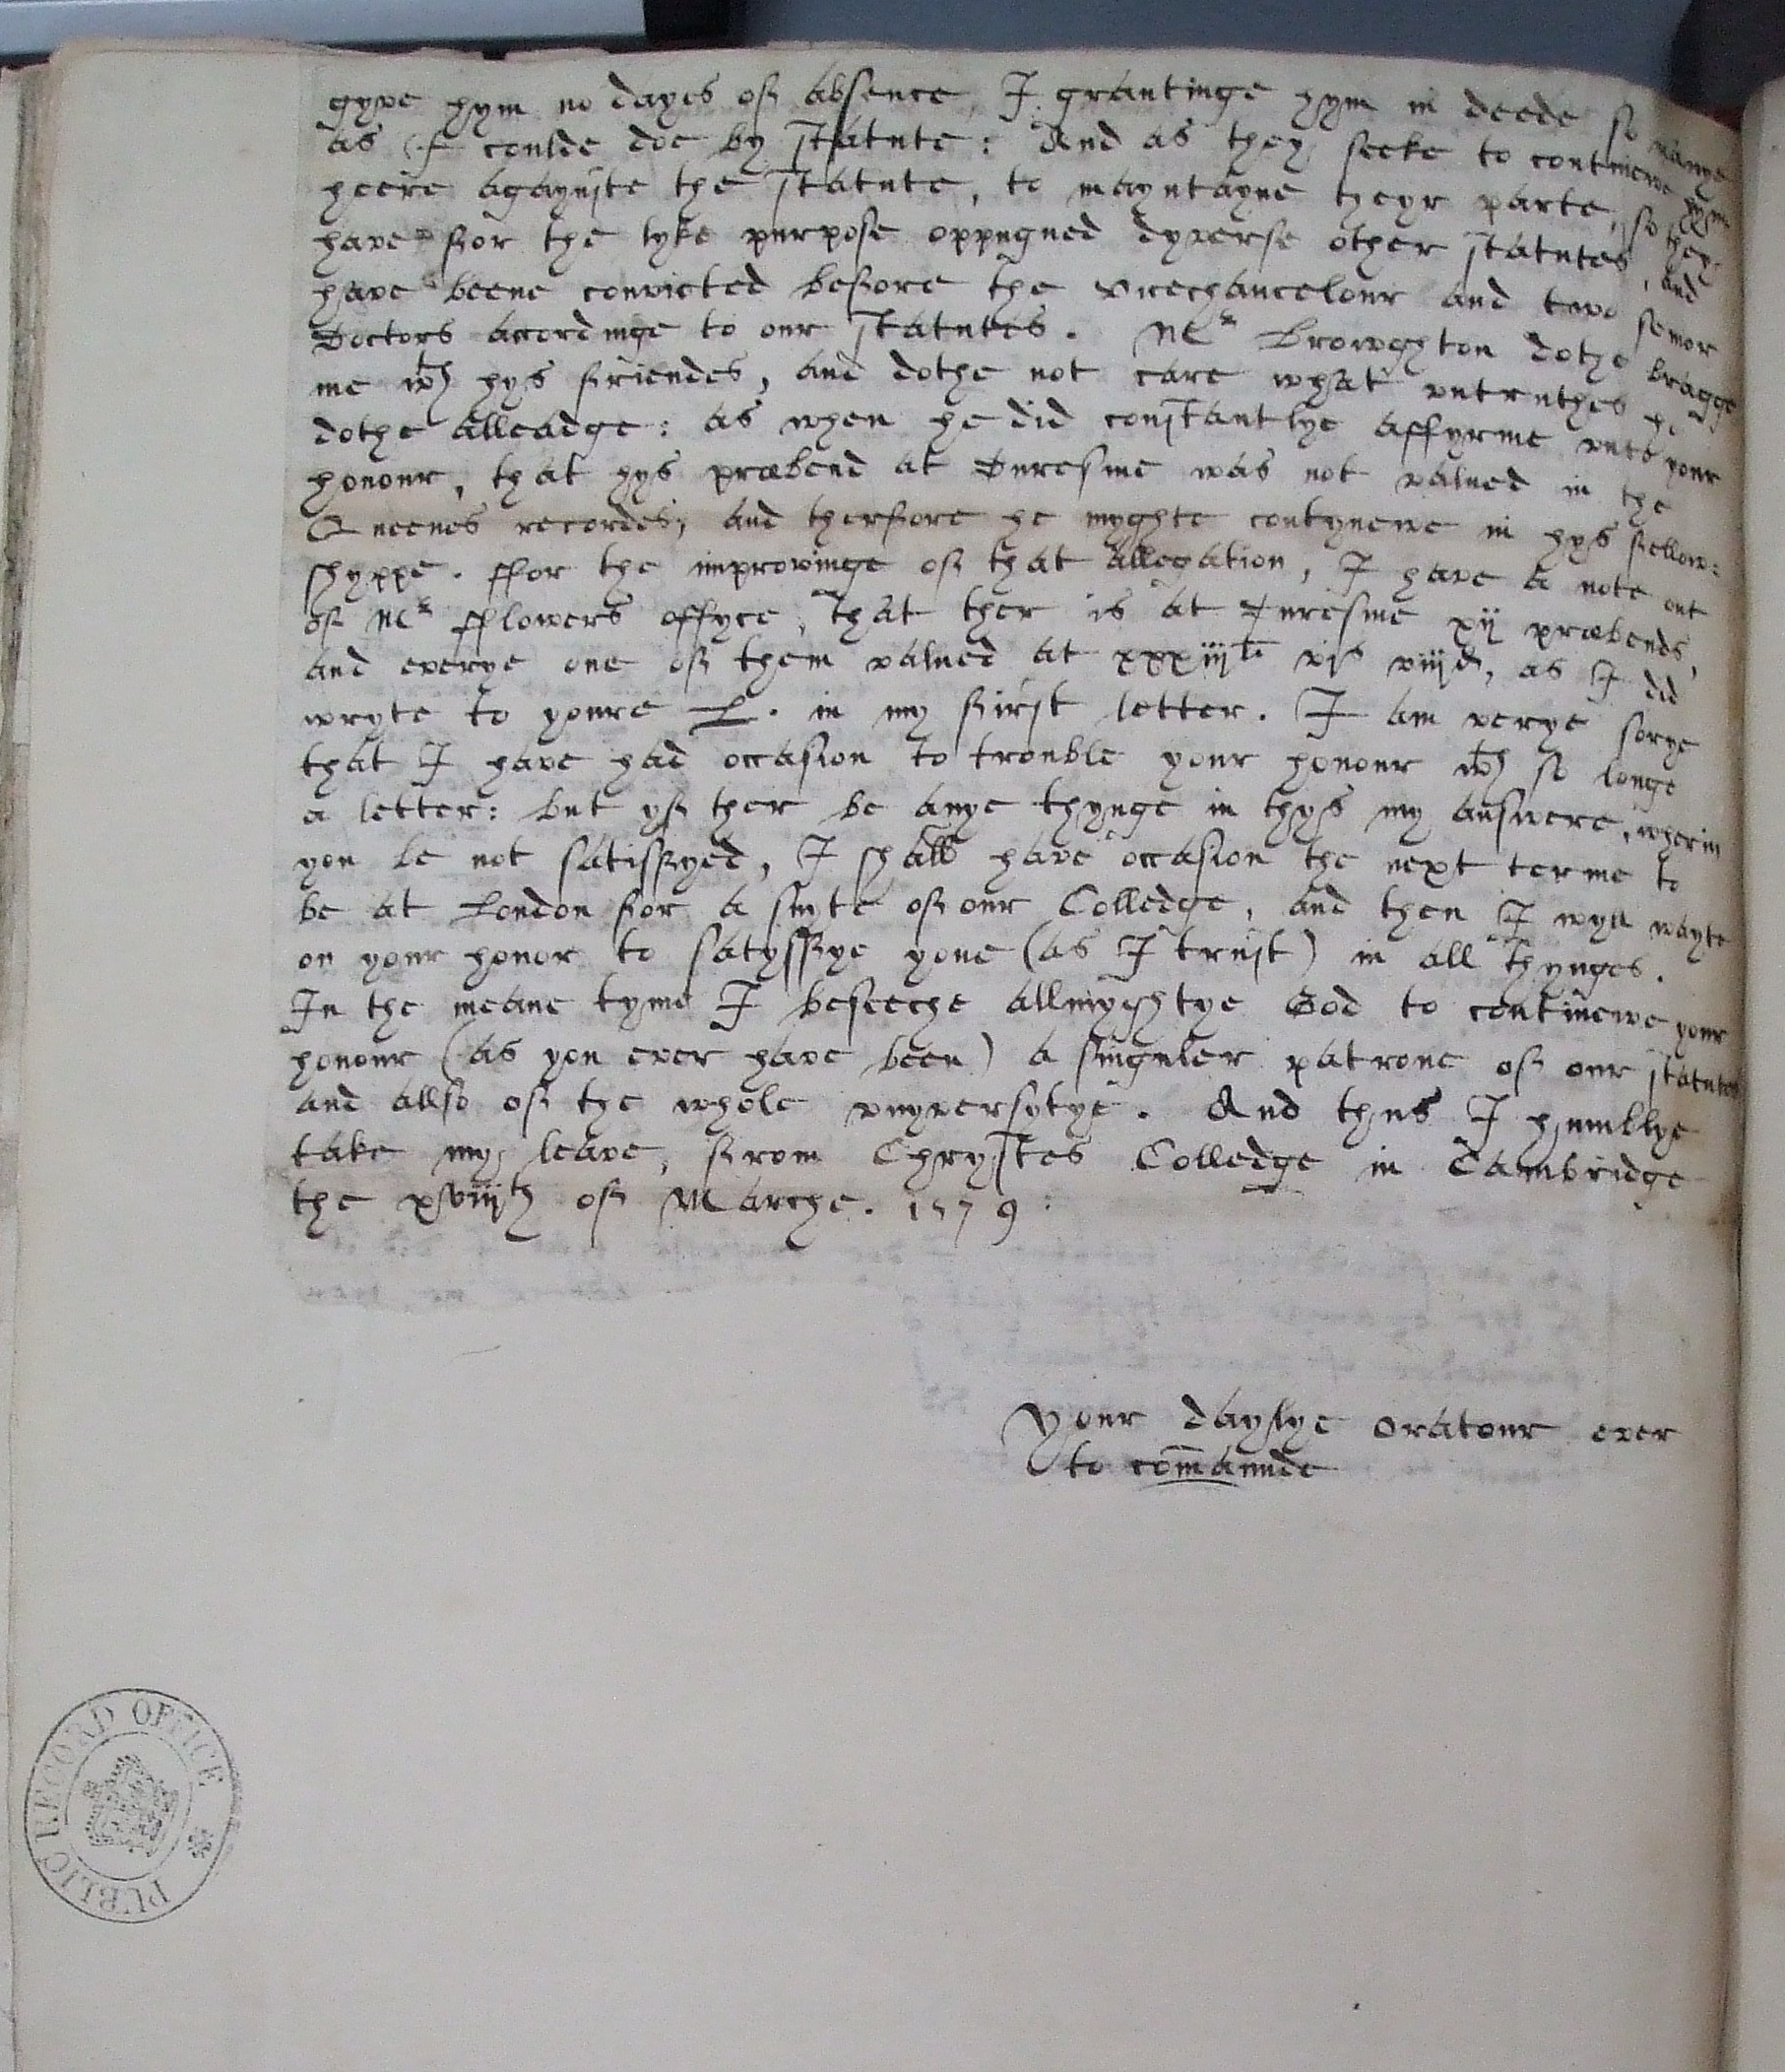 gyve hym no dayes of absence, I grantinge hym in deede so manye
as I coulde doe by statute: And as they seeke to contineue hym
heere agaynste the statute, to mayntayne theyr parte, so they
have for the lyke purpose oppugned dyverse other statutes, and
have beene convicted before the vicechancelour and two senior
Doctors accordinge to our statutes. Mr Browghton dothe bragge
me wth hys friendes, and dothe not care what untruthes he
dothe alleadge: as when he did constantlye affyrme unto your
honour, that hys præbend at Duresme was not valued in the
Queenes recordes, and therfore he myghte contynewe in hys fellow:
shyppe. ffor the improvinge of that allegation, I have a note out
of Mr fflowers offyce, that ther is at Duresme xij præbends,
and everye one of them valued at xxxiijli vjs viijd, as I did
wryte to youre L. in my first letter. I am verye sorye
that I have had occasion to trouble your honour wth so longe
a letter: but yf ther be anye thynge in thys my answere, wherin
you be not satisfyed, I shall have occasion the next terme to
be at London for a suyte of our Colledge, and then I wyll wayte
on your honor to satysfye youe (as I trust) in all thynges.
In the meane tyme I beseeche allmyghtye God to continewe your
honour (as you ever have been) a singuler patrone of our statutes
and allso of the whole unyversytye. And thus I humblye
take my leave, from Chrystes Colledge in Cambridge
the xviijth of Marche. 1579:
Your daylye oratour ever
to com̄aunde
PUBLIC RECORD OFFICE